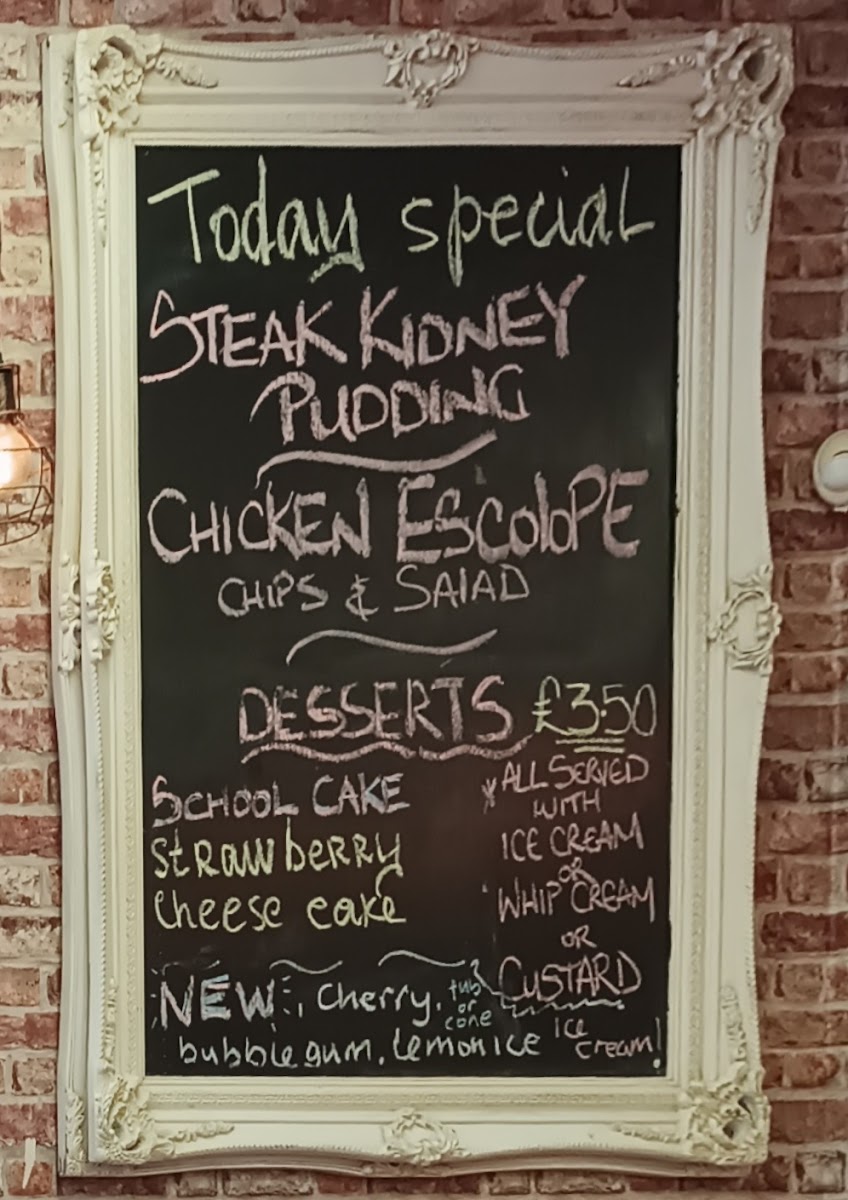 Today special
STEAK KIDNEY
PUDDING
CHICKEN ESCOloPE
CHIPS & SAlAD
DESSERTS £3.50
SCHOOL CAKE
strawberry
cheese cake
* ALL SERVED
WITH
ICE CREAM
OR
WHIP CREAM
OR
CUSTARD
NEW, cherry, tub or cone
bubblegum, lemon ice ice cream!